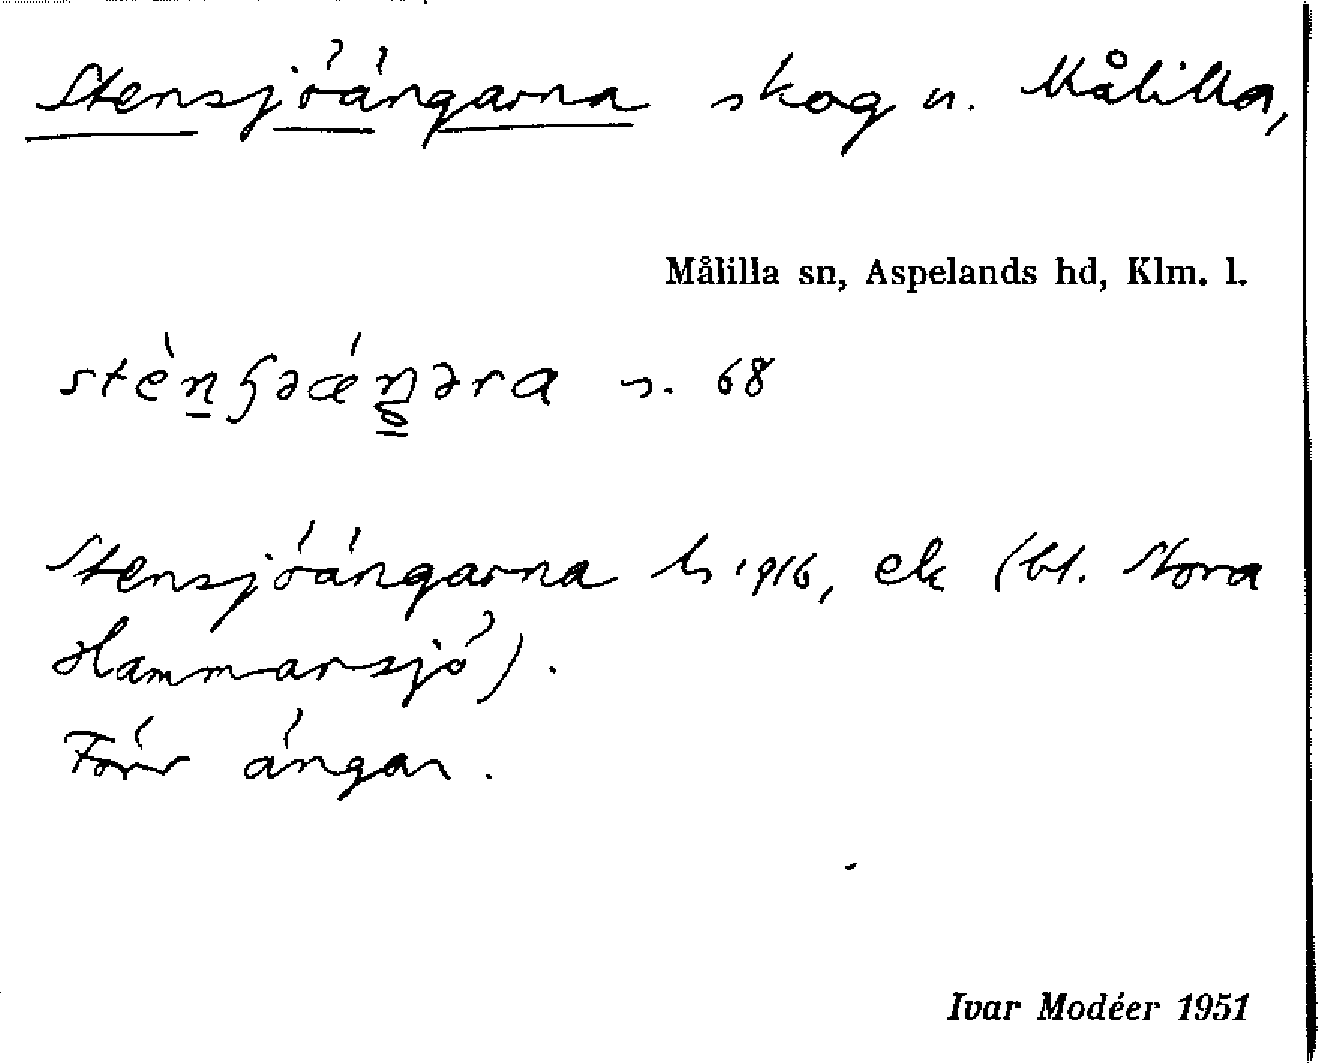 Stensjöängarna skog n. Målilla,
Målilla sn, Aspelands hd, Klm. l.
s. 68
Stensjöängarna ls 1916, ek (bl. Stora
Hammarsjö).
Förr ängar.
Ivar Modéer 1951